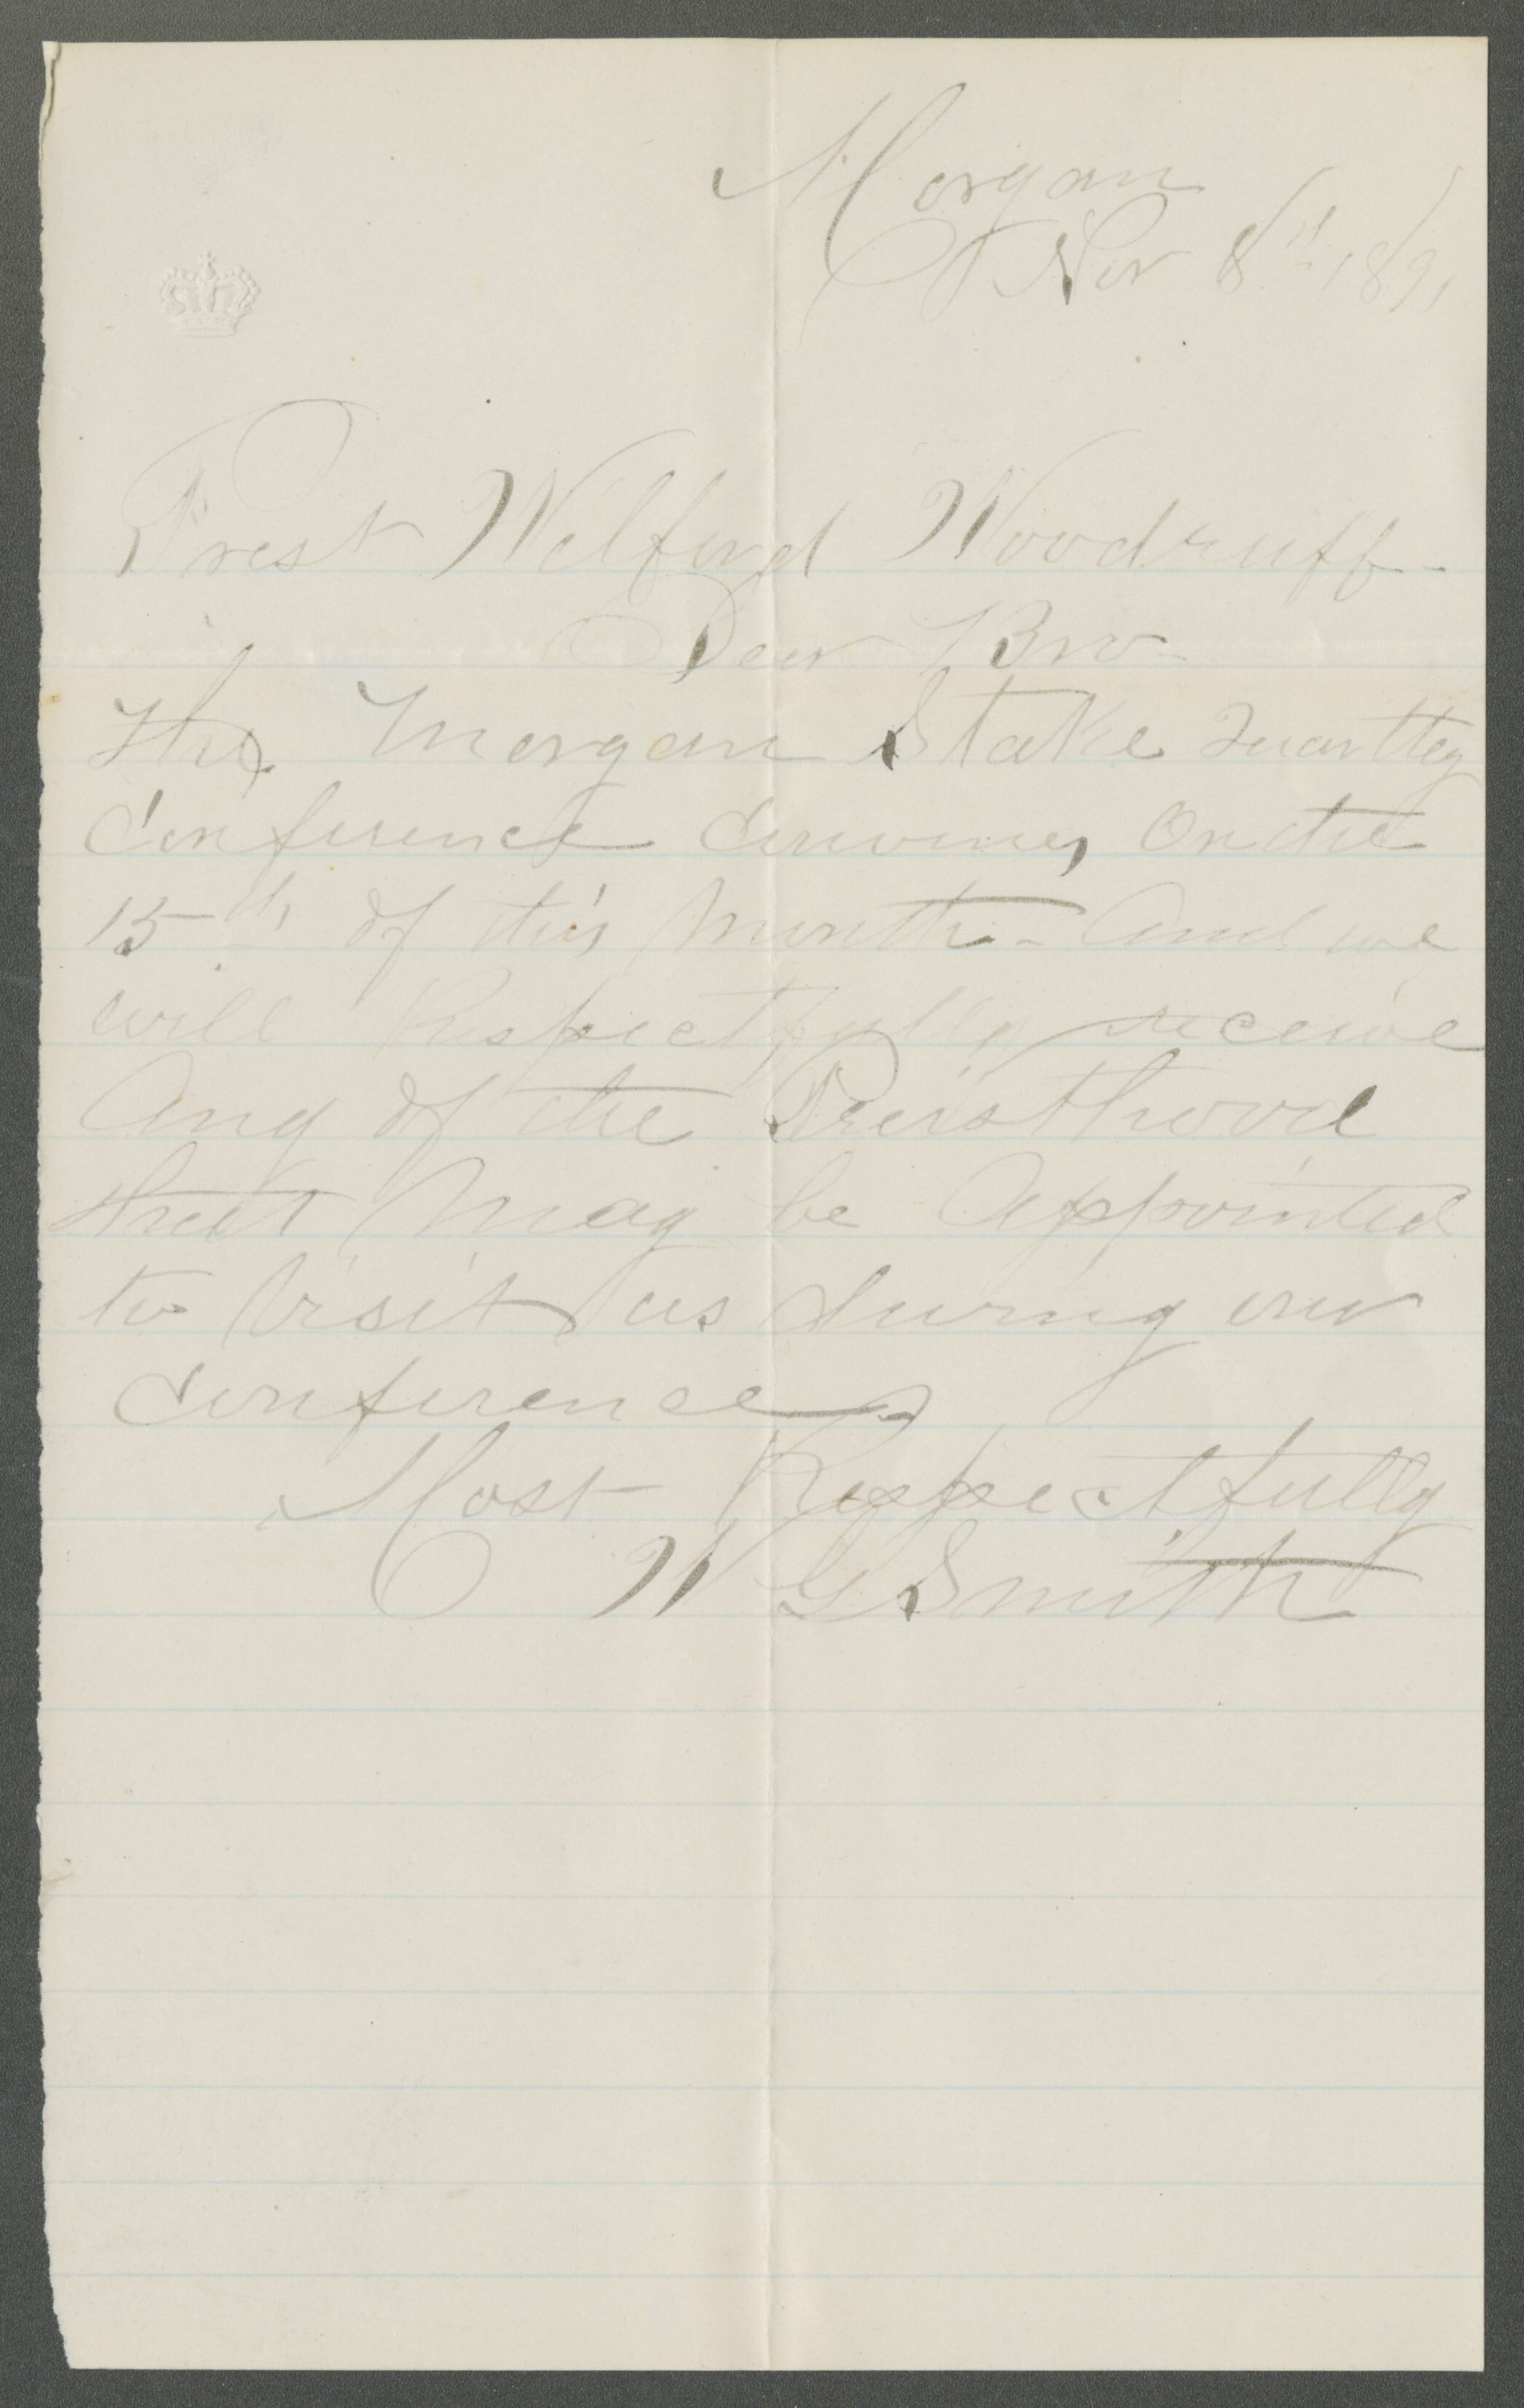 Morgan
Nov 8th 1891
Prest Wilford Woodruff-
Dear Bro-
The Morgan Stake Quartley
Conference Convenes On the
15th of this Month- And we
will Respectfully receive
Any of the Preisthood
that May be Appointed
to Visit us during our
Conference
Most Respectfully
W G Smith